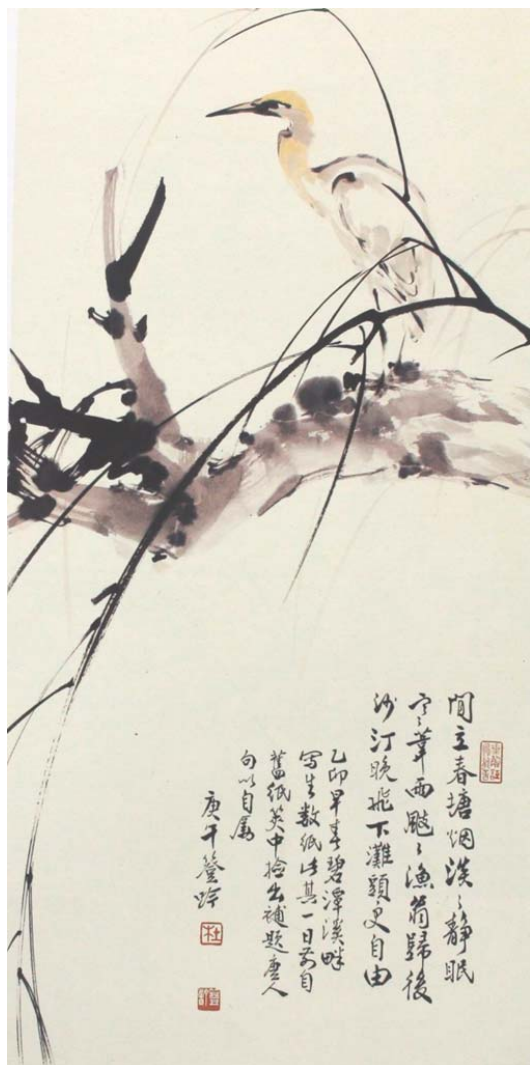 閒立春塘烟淡〻靜眠
寒葦雨颼〻漁翁歸後
沙汀晚飛下灘頭更自由
乙卯早春碧潭溪畔
寫生數紙此其一日前自
舊紙簍中撿出補題唐人
句以自勵
庚午簦吟
杜